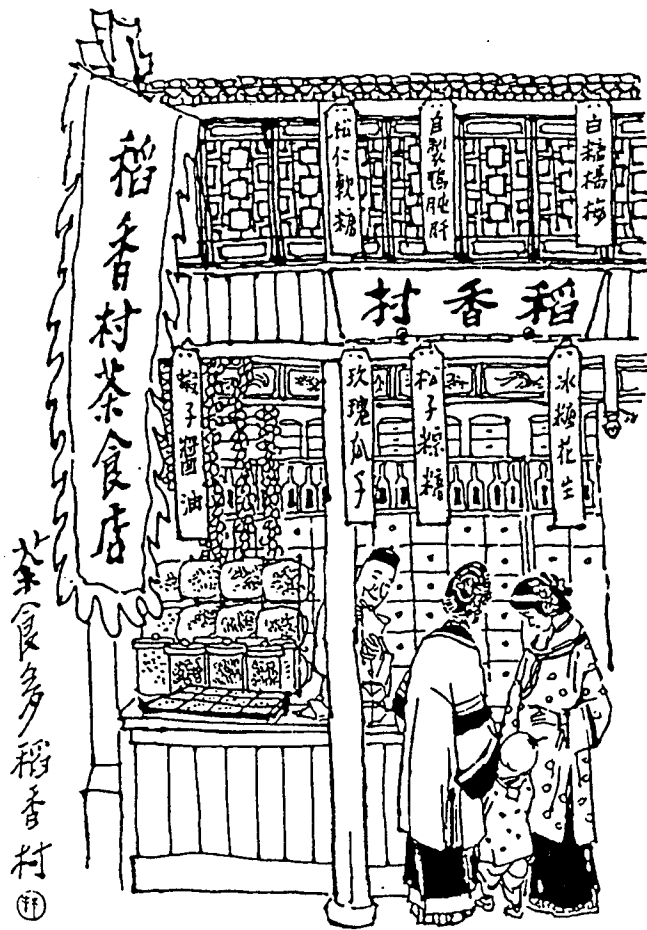 稻香村茶食店
松仁軟糖
自製鴨肫肝
白糖楊梅
稻香村
蝦子醬油
玫瑰瓜子
松子粽糖
冰糖花生
茶食多稻香村